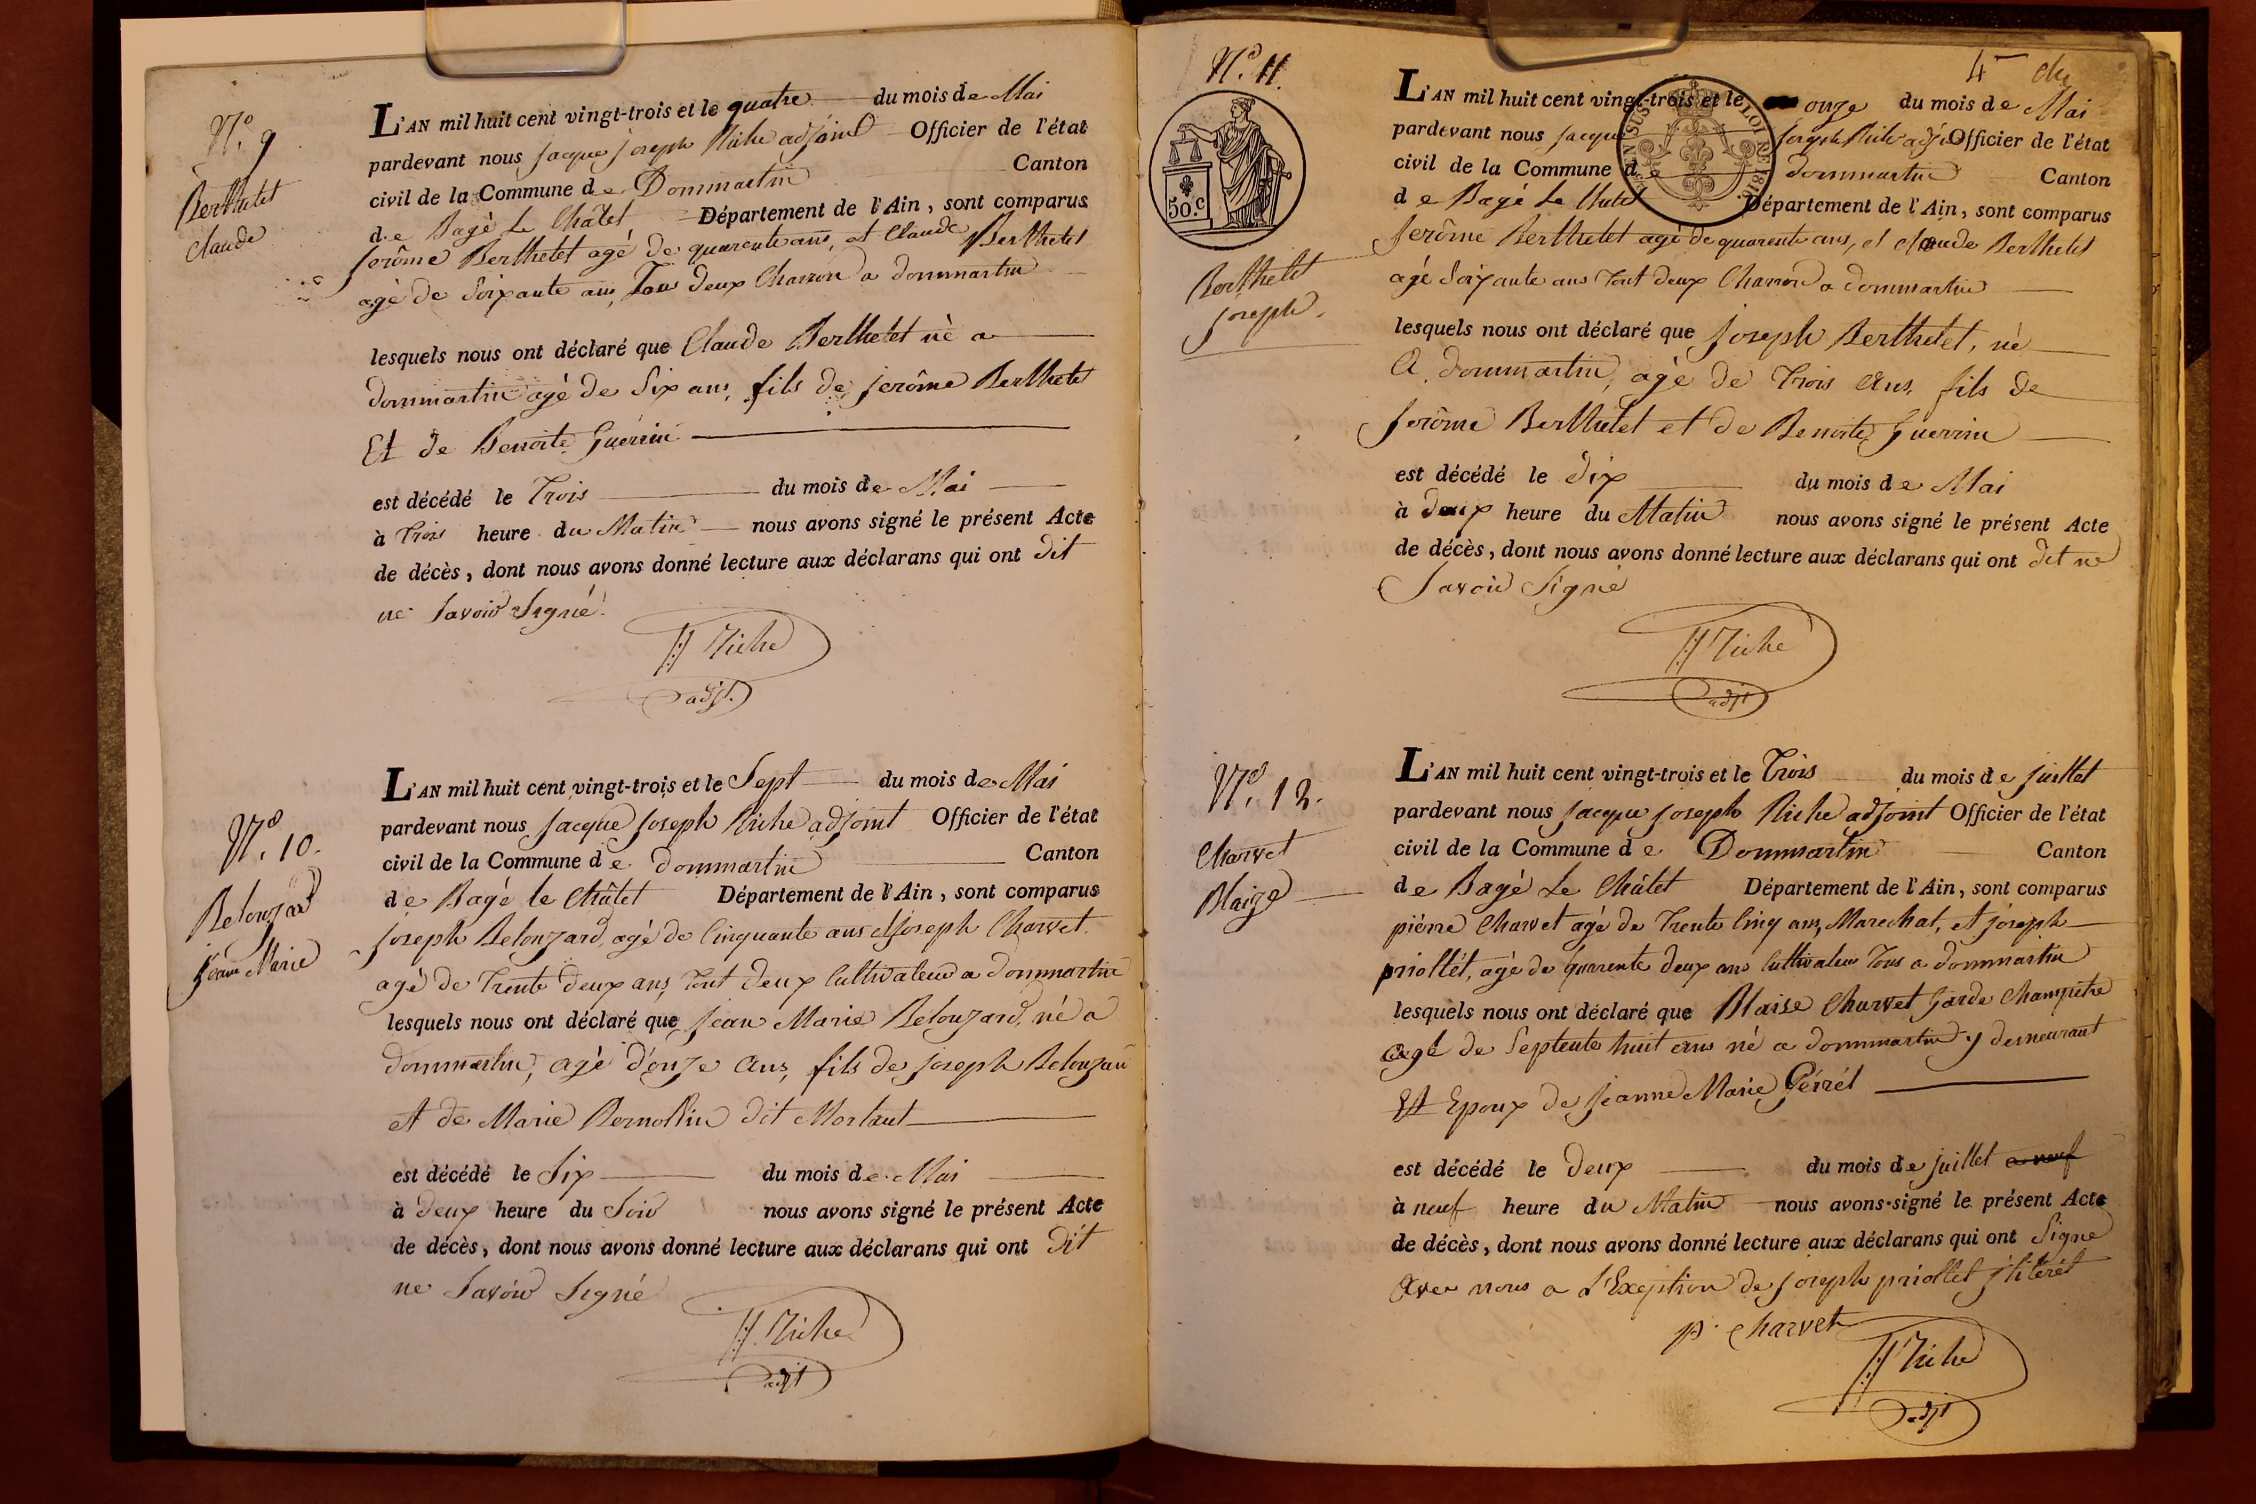 N.o 9
Berthelet
Claude
L'AN mil huit cent vingt-trois et le quatre du mois de Mai
pardevant nous jacque joseph Riche adjoint Officier de l'état
civil de la Commune de Dommartin Canton
de Bagé Le Châtel Département de l'Ain, sont comparus
jerôme Berthelet agé de quarente ans, et Claude Berthelet
agé de Soixante ans, Tous deux Charron a dommartin
lesquels nous ont déclaré que Claude Berthelet né a
dommartin agé de Six ans, fils de jerôme Berthelet
Et de Benoite Guerrin
est décédé le Trois du mois de Mai
à Trois heure du Matin nous avons signé le présent Acte
de décès, dont nous avons donné lecture aux déclarans qui ont dit
ne Savoir Signé.
JJ Riche
adjt.
N.o 10.
Belouzard
jean Marie
L'AN mil huit cent vingt-trois et le Sept du mois de Mai
pardevant nous jacque joseph Riche adjoint Officier de l'état
civil de la Commune de dommartin Canton
de Bagé le Châtel Département de l'Ain, sont comparus
joseph Belouzard, agé de Cinquante ans et joseph Charvet
agé de Trente deux ans, Tout deux Cultivateur a dommartin
lesquels nous ont déclaré que jean Marie Belouzard, né a
dommartin, agé d'onze ans, fils de joseph Belouzard
et de Marie Bernollin dit Mortaut
est décédé le Six du mois de Mai
à deux heure du Soir nous avons signé le présent Acte
de décès, dont nous avons donné lecture aux déclarans qui ont dit
ne Savoir Signé
JJ. Riche
adjt
4
N.o 11.
50.c
LOI DE 1816.
Berthelet
joseph.
L'AN mil huit cent vingt-trois et le onze du mois de Mai
pardevant nous jacque joseph Riche adjt Officier de l'état
civil de la Commune de dommartin Canton
de Bagé Le Châtel Département de l'Ain, sont comparus
jerôme Berthelet agé de quarente ans, et claude Berthelet
agé Soixante ans Tout deux Charron a dommartin
lesquels nous ont déclaré que joseph Berthelet, né
A dommartin, agé de Trois ans, fils de
jerôme Berthelet et de Benoite Guerrin
est décédé le dix du mois de Mai
à deux heure du Matin nous avons signé le présent Acte
de décès, dont nous avons donné lecture aux déclarans qui ont dit ne
Savoir Signé
JJ Riche
adjt
N.o 12.
Charvet
Blaize
L'AN mil huit cent vingt-trois et le Trois du mois de juillet
pardevant nous jacque joseph Riche adjoint Officier de l'état
civil de la Commune de Dommartin Canton
de Bagé Le Châtel Département de l'Ain, sont comparus
pierre Charvet agé de Trente Cinq ans, Marechal, et joseph
priollet, agé de quarente deux ans Cultivateur Tous a dommartin
lesquels nous ont déclaré que Blaise Charvet Garde Champetre
agé de Septente huit ans né a dommartin y demeurant
Et Epoux de jeanne Marie Perrét
est décédé le deux du mois de juillet a neuf
à neuf heure du Matin nous avons signé le présent Acte
de décès, dont nous avons donné lecture aux déclarans qui ont Signé
Avec nous a L'Exeption de joseph priollet jlitérét
p. charvet
JJ Riche
adjt